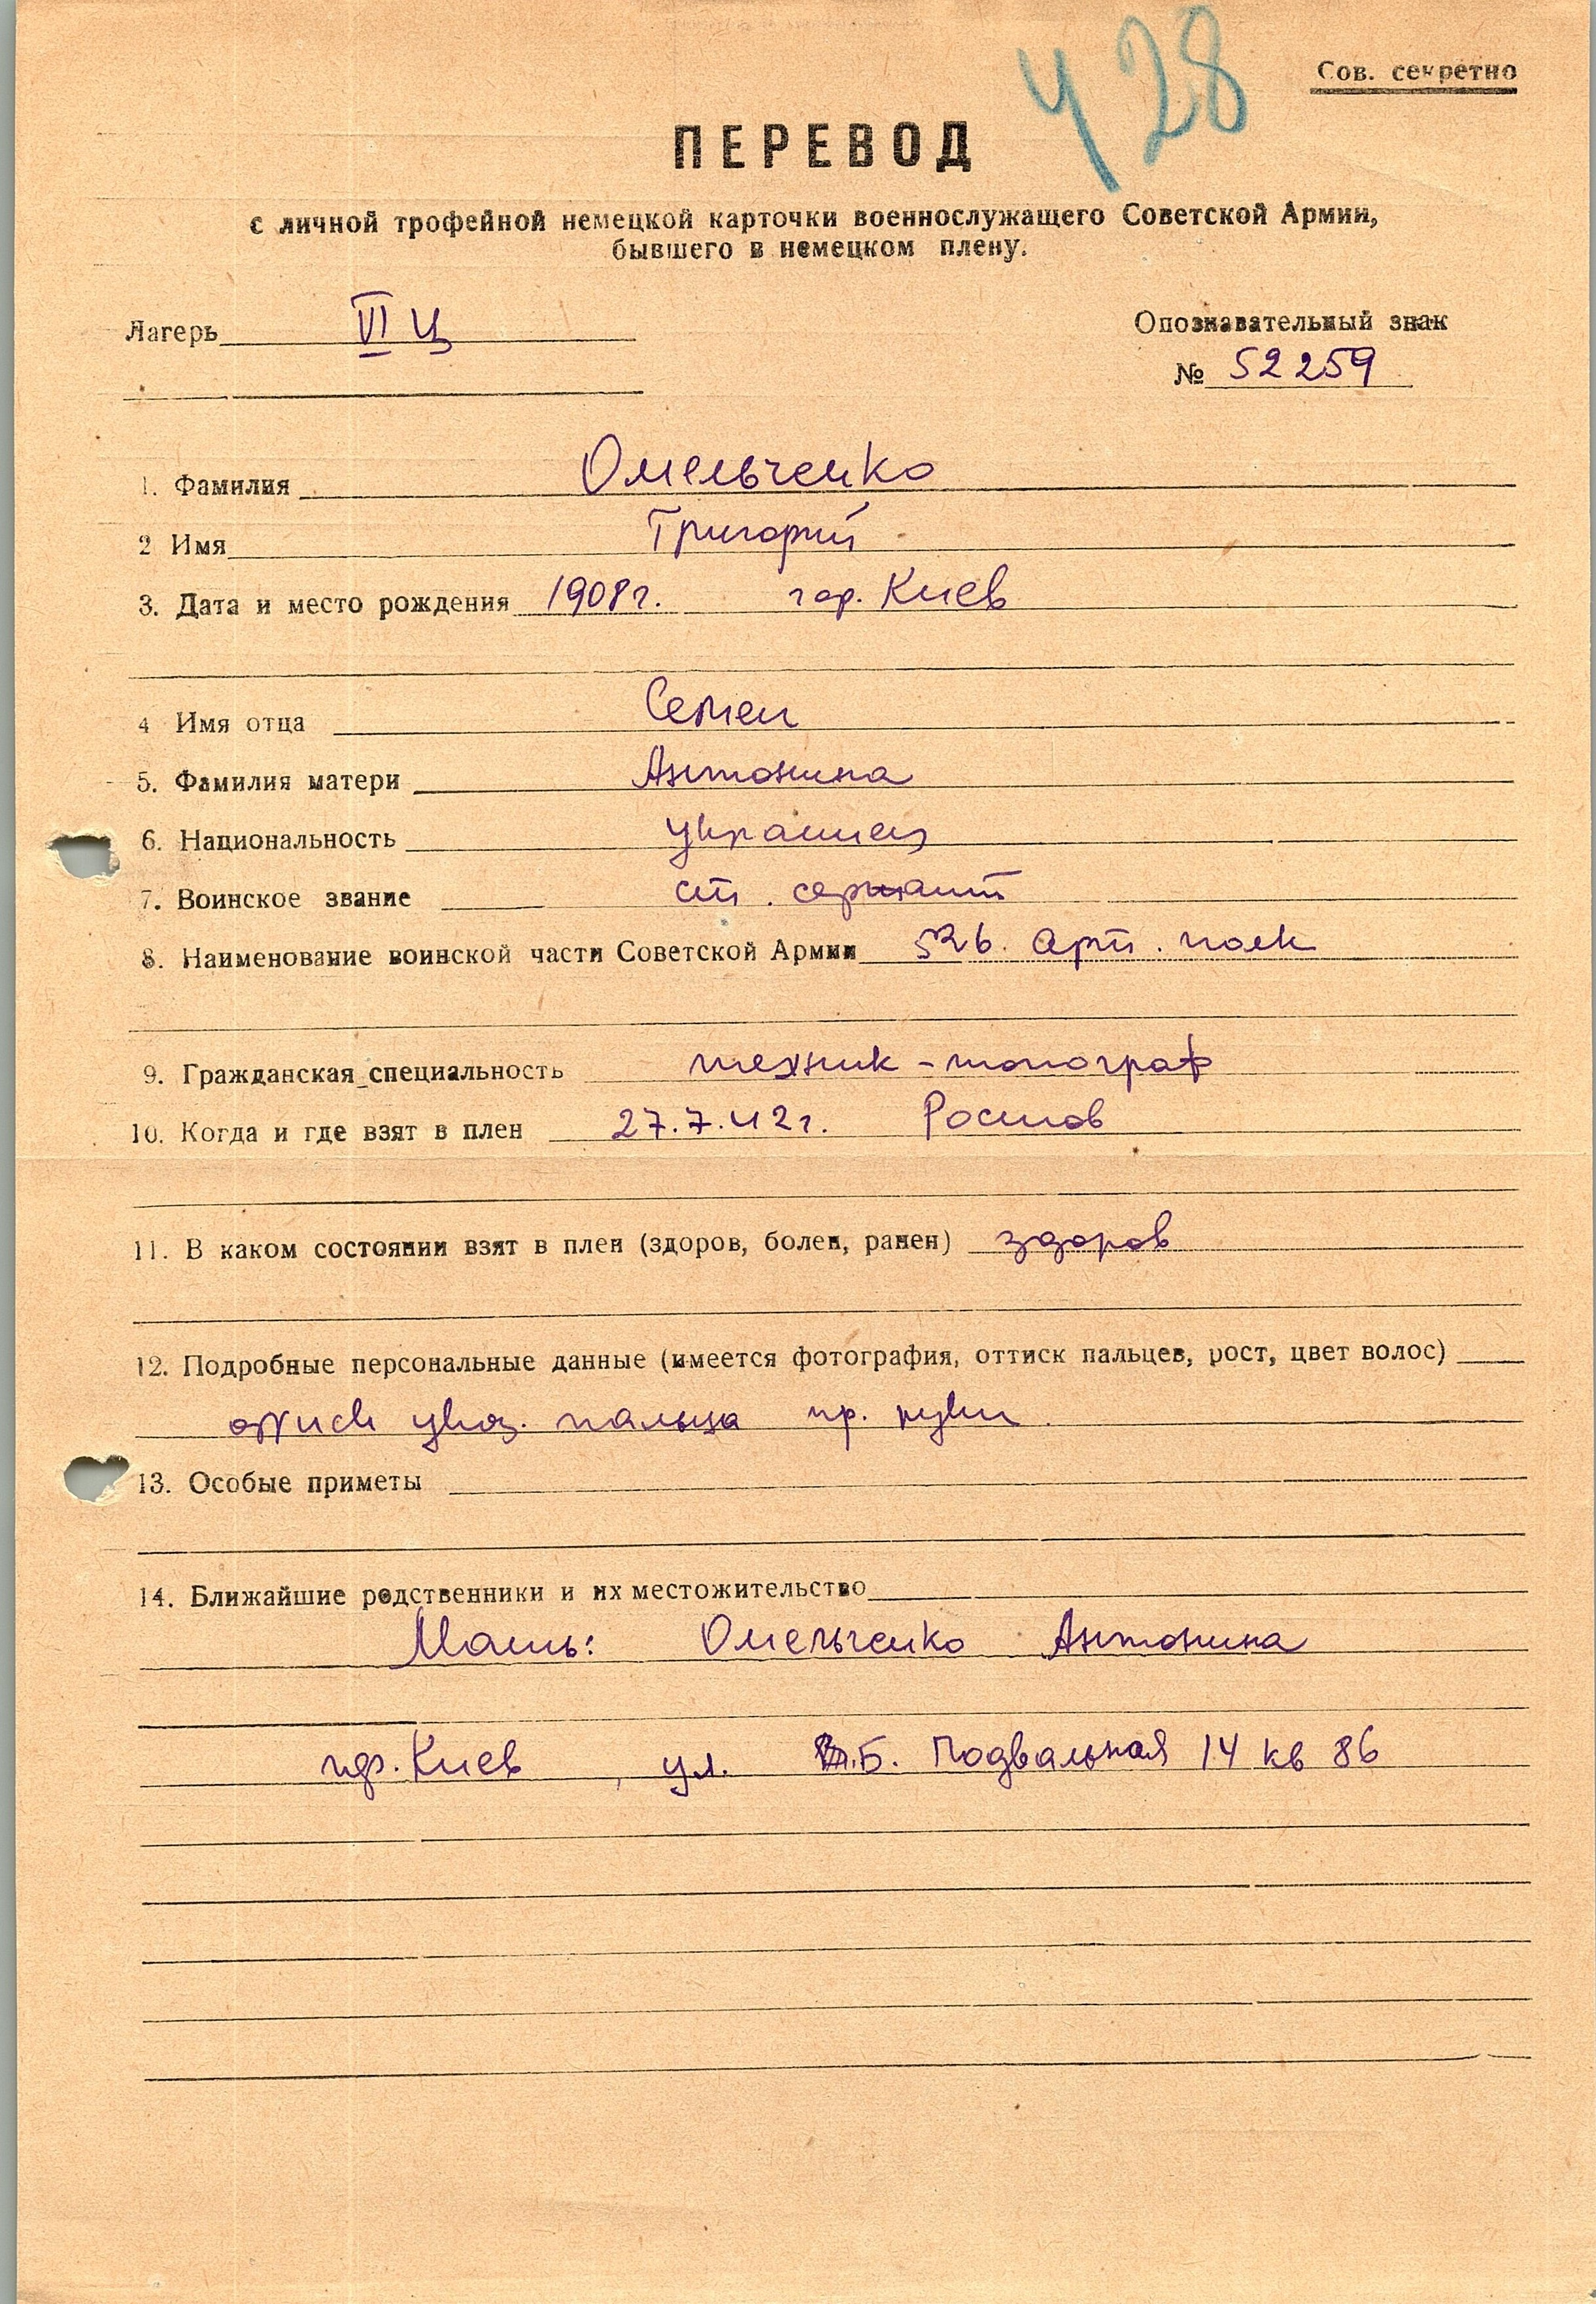 428
Сов. секретно
ПЕРЕВОД
с личной трофейной немецкой карточки военнослужащего Советской Армии,
бывшего в немецком плену.
Лагерь VI Ц
Опознавательный знак
№ 52259
1. Фамилия Омельченко
2 Имя Григорий
3. Дата и место рождения 1908 г. гор. Киев
4 Имя отца Семен
5. Фамилия матери Антонина
6. Национальность украинец
7. Воинское звание ст. сержант
8. Наименование воинской части Советской Армии 526. арт. полк
9. Гражданская специальность техник-топограф
10. Когда и где взят в плен 27.7.42 г. Ростов
11. В каком состоянии взят в плен (здоров, болен, ранен) здоров
12. Подробные персональные данные (имеется фотография, оттиск пальцев, рост, цвет волос)
указ. пальца пр. руки
13. Особые приметы
14. Ближайшие родственники и их местожительство
Мать: Омельченко Антонина
гор. Киев, ул. Б. Подвальная 14 кв 86